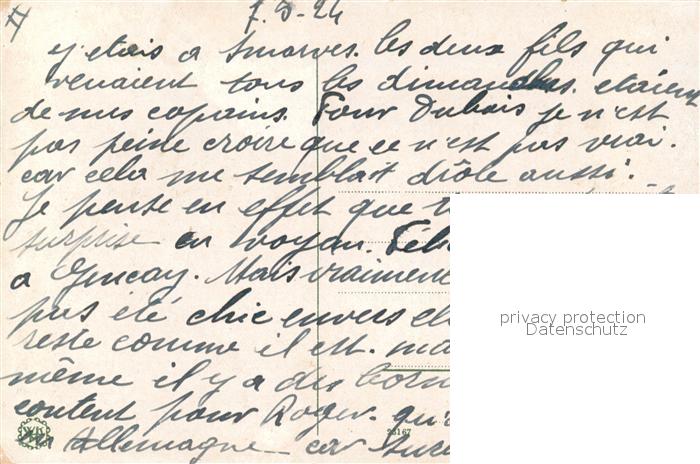 7.3-24
y etais a Smarves. les deux fils qui
venaient tous les dimanches. etaient
de mes copains. Pour Dubois je n'est
pas peine croire que ce n'est pas vrai.
car cela me semblait drôle aussi.
Je pense en effet que t
surprise en voyan. Féli
a Gencay. Mais vraiment
pas été chic envers el
reste comme il est. ma
même il y a des born
content pour Roger. qu'i
en Allemagne car
privacy protection
Datenschutz
23167